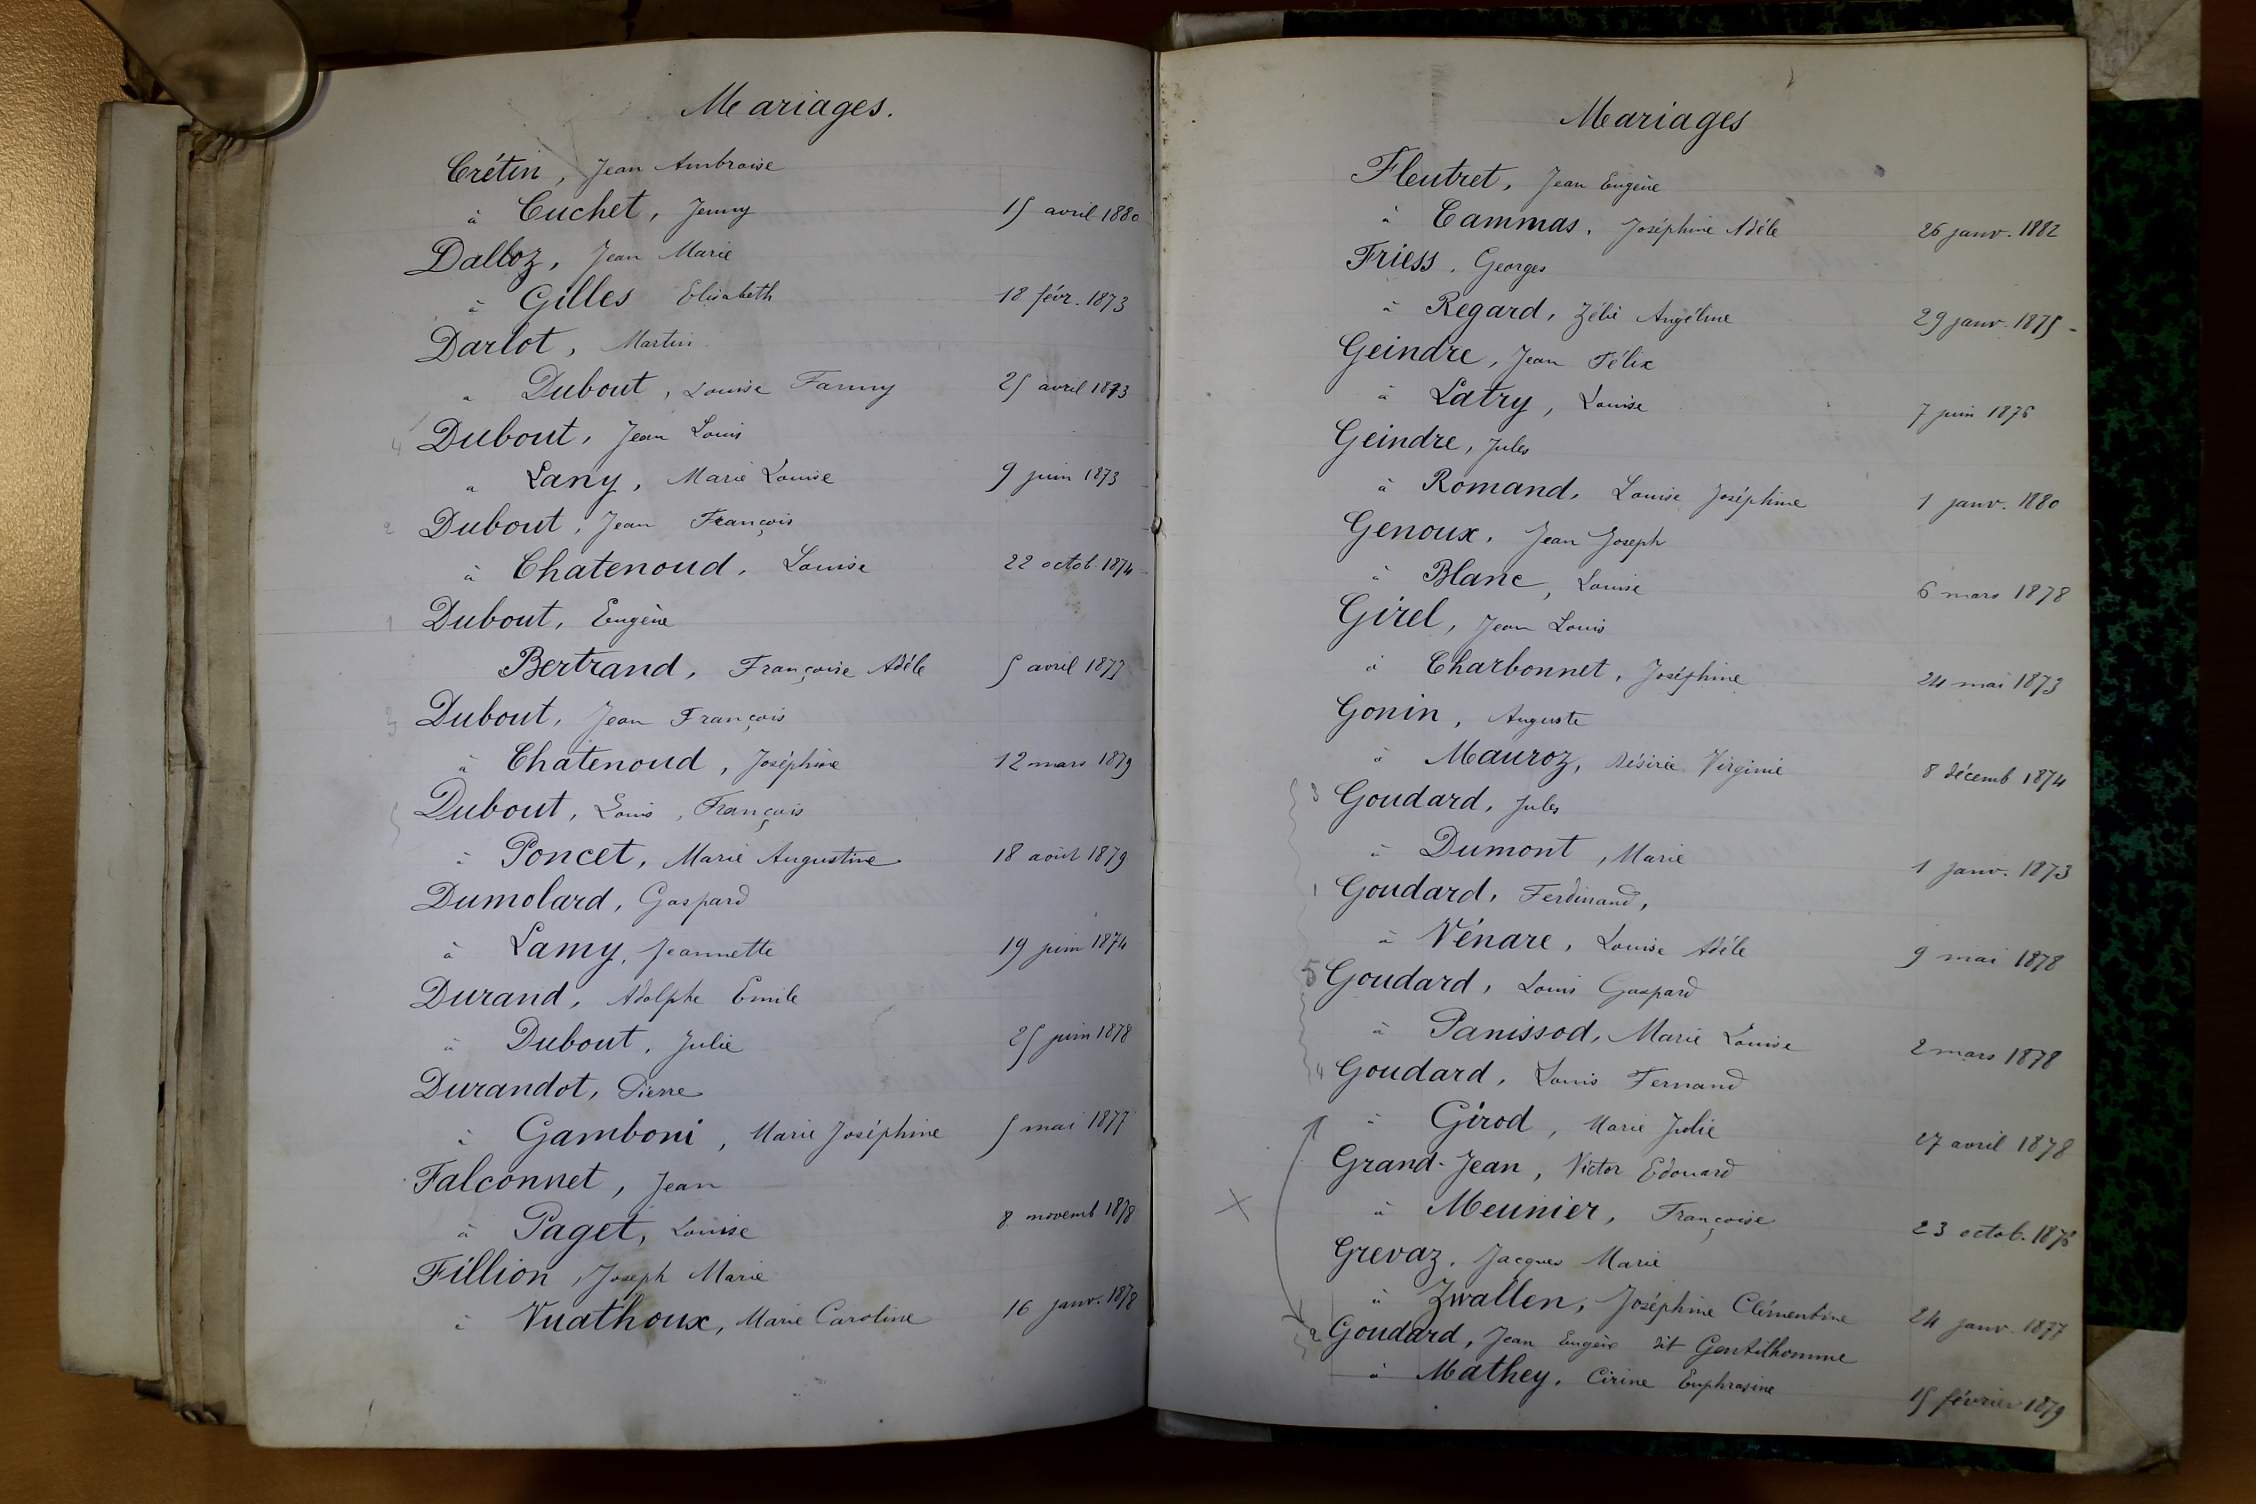 Mariages.
Crétin, Jean Ambroise
à Cuchet, Jenny 15 avril 1880
Dalloz, Jean Marie
à Gilles Elisabeth 18 févr. 1873
Darlot, Martin
à Dubout, Louise Fanny 25 avril 1873
4 Dubout, Jean Louis
à Lany, Marie Louise 9 juin 1873
2 Dubout, Jean François
à Chatenoud, Louise 22 octob. 1874
1 Dubout, Eugène
Bertrand, Françoise Adèle 5 avril 1877
3 Dubout, Jean François
à Chatenoud, Joséphine 12 mars 1879
5 Dubout, Louis, François
à Poncet, Marie Augustine 18 août 1879
Dumolard, Gaspard
à Lamy, Jeannette 19 juin 1874
Durand, Adolphe Emile
à Dubout, Julie 25 juin 1878
Durandot, Pierre
à Gamboni, Marie Joséphine 5 mai 1877
Falconnet, Jean
à Paget, Louise 8 novemb 1878
Fillion, Joseph Marie
à Vuathoux, Marie Caroline 16 janv. 1878
Mariages
Fleutret, Jean Eugène
à Cammas, Joséphine Adèle 26 janv. 1882
Friess, Georges
à Regard, Zélie Angéline 29 janv. 1875
Geindre, Jean Félix
à Latry, Louise 7 juin 1876
Geindre, Jules
à Romand, Louise Joséphine 1 janv. 1880
Genoux, Jean Joseph
à Blanc, Louise 6 mars 1878
Girel, Jean Louis
à Charbonnet, Joséphine 24 mai 1873
Gonin, Auguste
à Mauroz, Désirée Virginie 8 décemb 1874
3 Goudard, Jules
à Dumont, Marie 1 janv. 1873
1 Goudard, Ferdinand,
à Vénare, Louise Adèle 9 mai 1878
5 Goudard, Louis Gaspard
à Panissod, Marie Louise 2 mars 1878
4 Goudard, Louis Fernand
à Girod, Marie Julie 27 avril 1878
Grand-Jean, Victor Edouard
à Meunier, Françoise 23 octob. 1876
Grevaz, Jacques Marie
à Zwallen, Joséphine Clémentine 24 janv. 1877
2 Goudard, Jean Eugène dit Gentilhomme
à Mathey, Cirine Euphrasine 15 février 1879